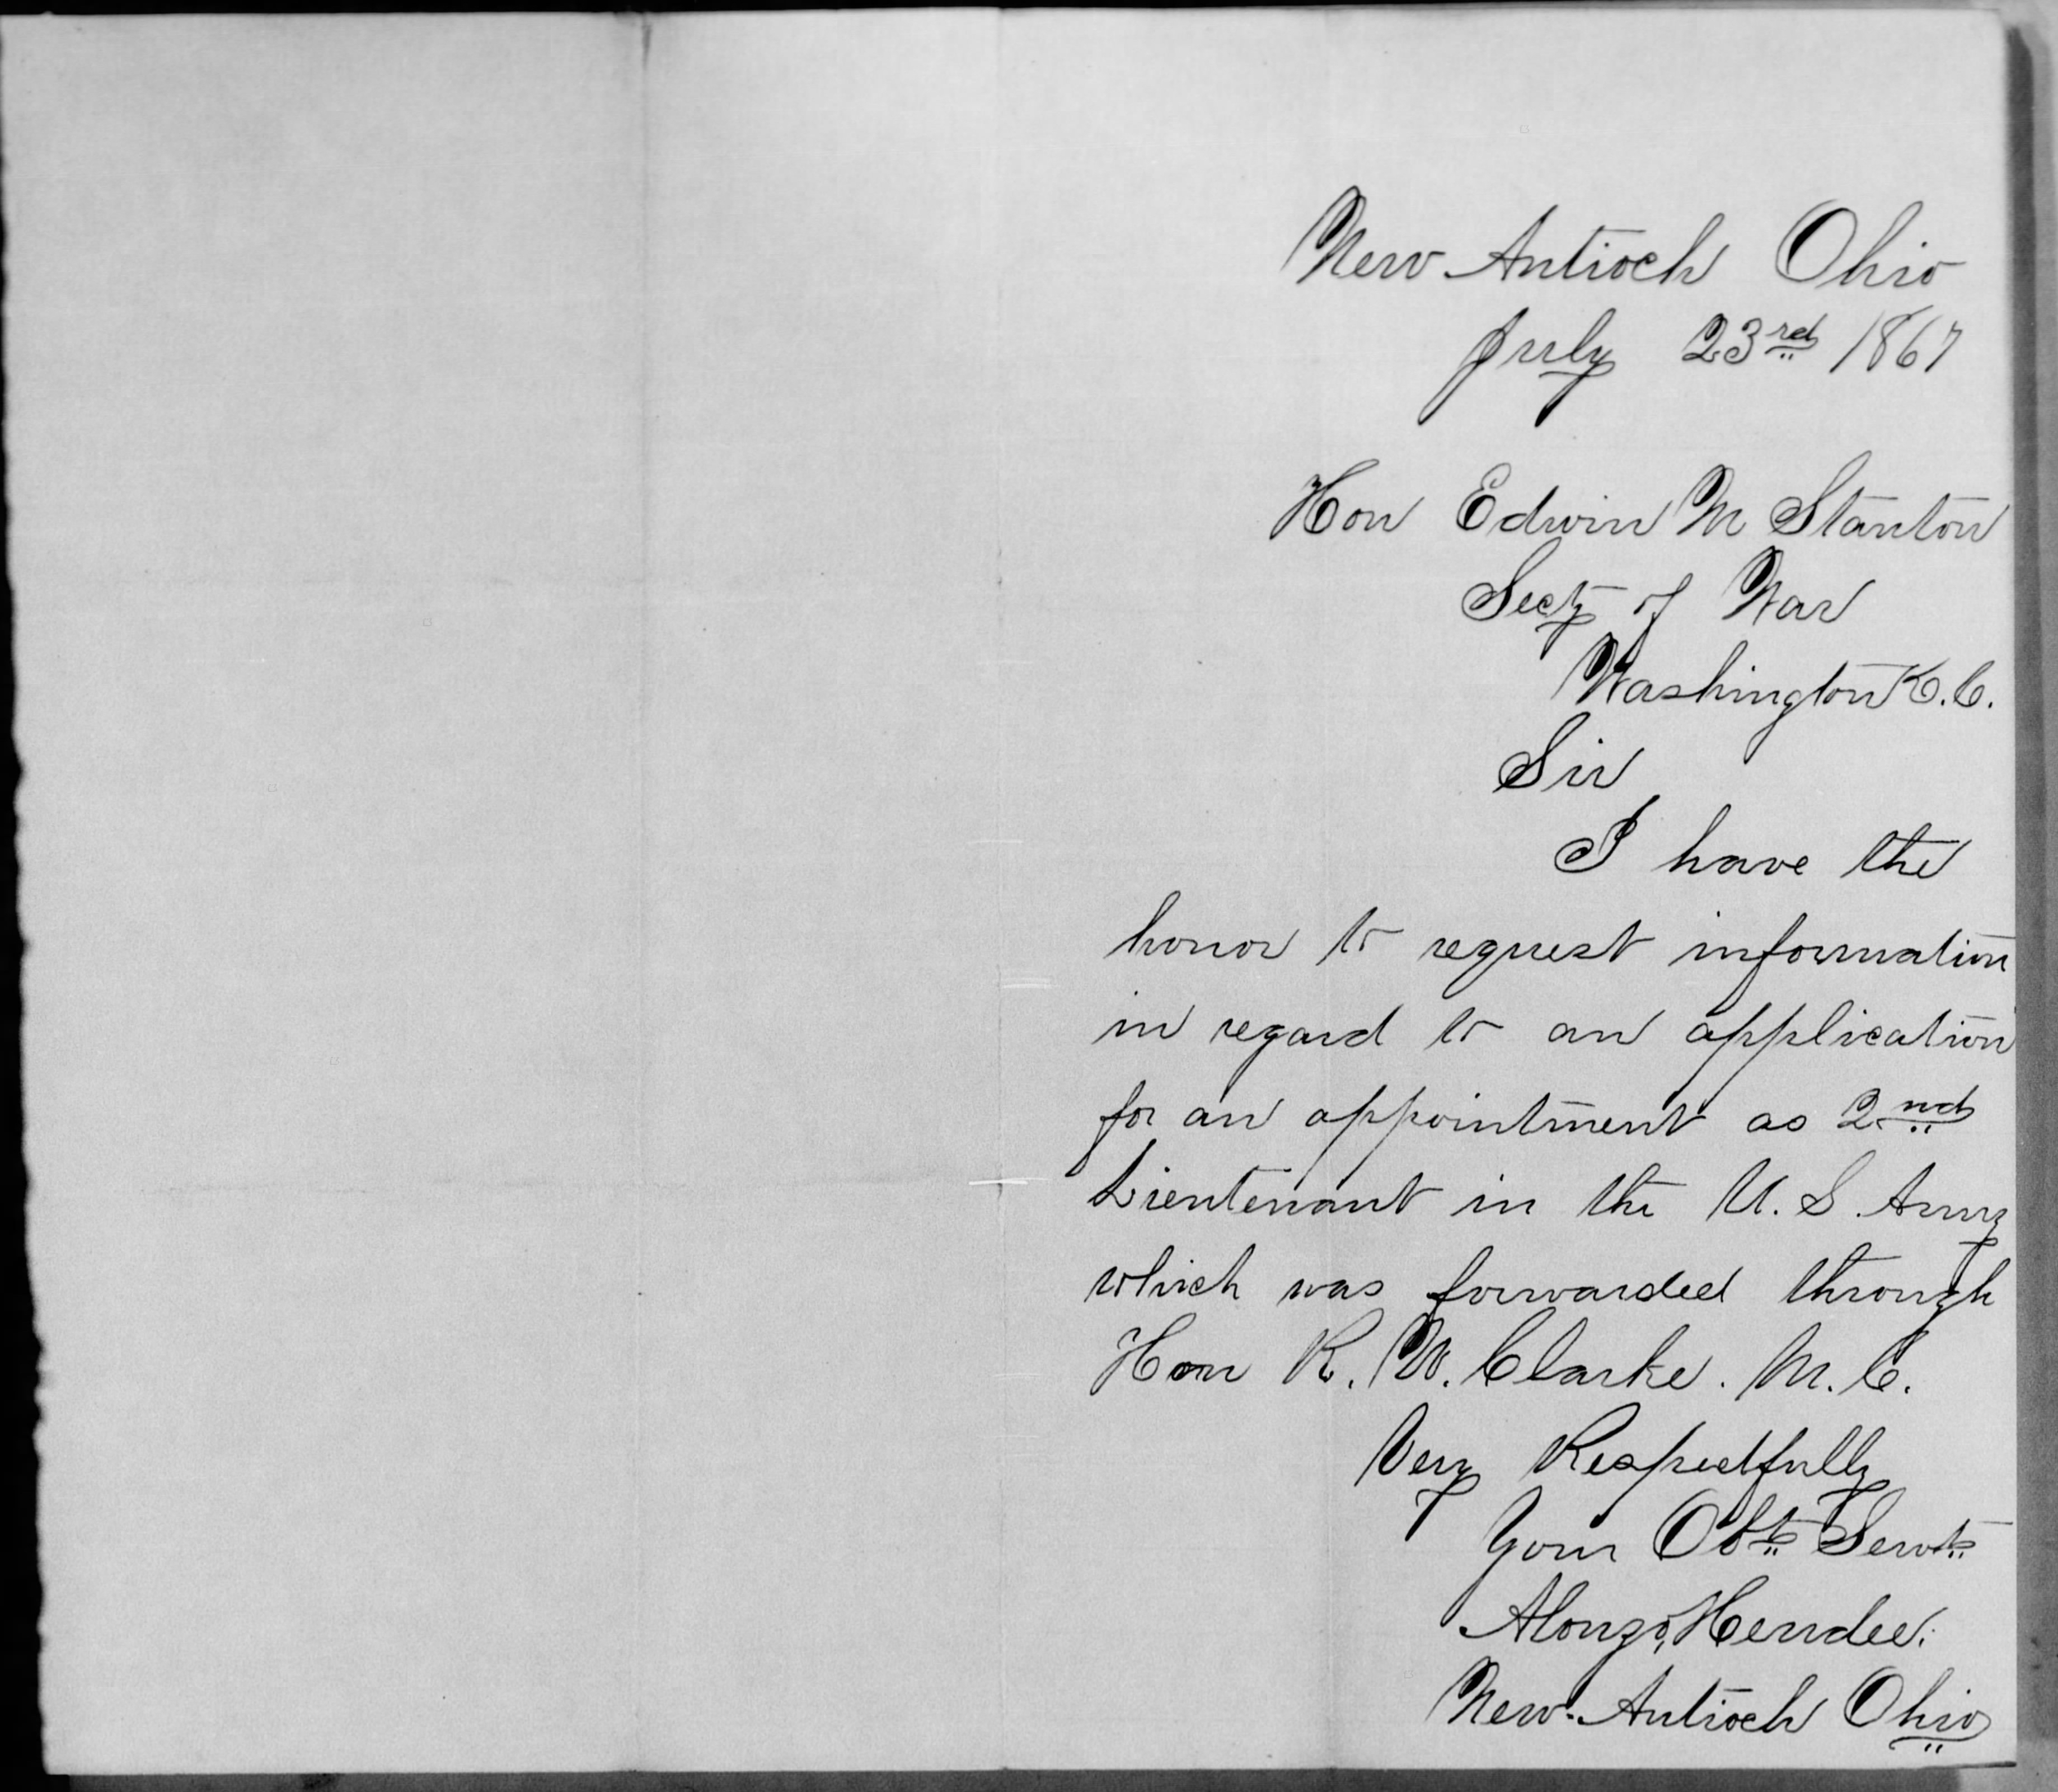 New Antioch Ohio
July 23rd 1867
Hon Edwin M Stanton
Secty of War
Washington D.C.
Sir
I have the
honor to request information
in regard to an application
for an appointment as 2nd
Lieutenant in the U.S. Army
which was forwarded through
Hon R. W. Clarke. M.C.
Very Respectfully
Your Obt Servt
Alonzo, Hendee.
New Antioch Ohio